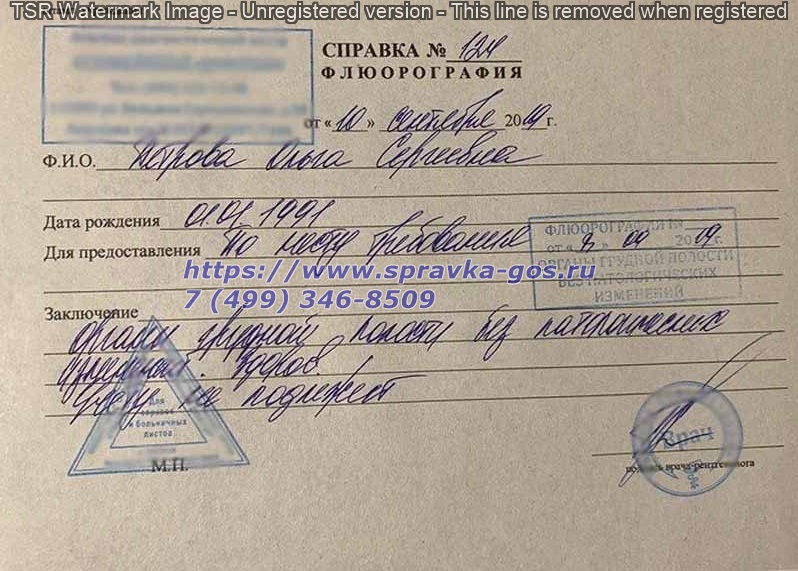 TSR Watermark Image - Unregistered version - This line is removed when registered
СПРАВКА № 124
ФЛЮОРОГРАФИЯ
от « 10 » сентября 2019 г.
Ф.И.О. Петрова Ольга Сергеевна
Дата рождения 01.01.1991
Для предоставления По месту требования
ФЛЮОРОГРАФИЯ №
от « » 09 2019 г.
ОРГАНЫ ГРУДНОЙ ПОЛОСТИ
БЕЗ ПАТОЛОГИЧЕСКИХ
ИЗМЕНЕНИЙ
https://www.spravka-gos.ru
7 (499) 346-8509
Заключение
органы грудной полости без патологических
изменений. Здоров
не подлежит
Для
справок
и больничных
листов
М.П.
Врач
подпись врача-рентгенолога